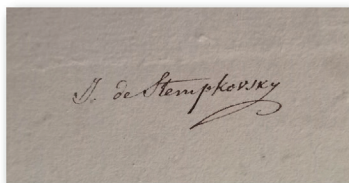 J. de Stempkovsky